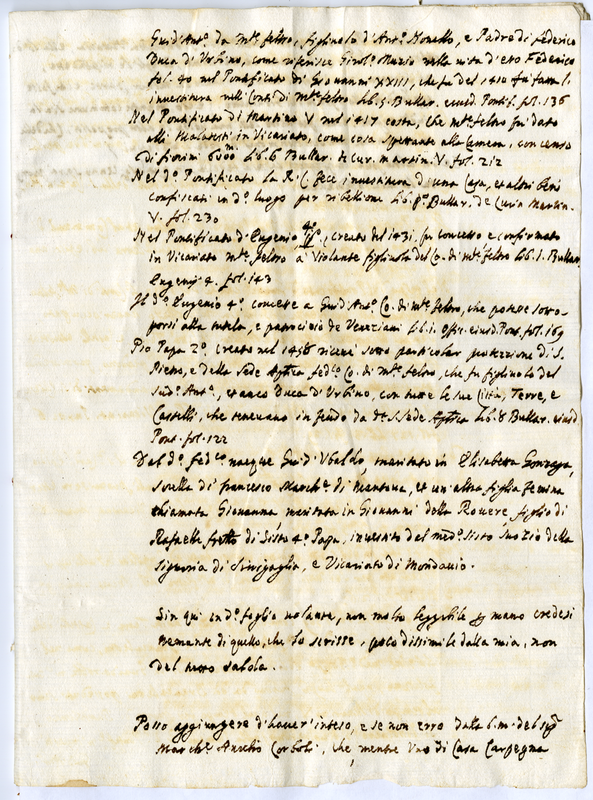 Guid'Ant.o da M.te feltro, figliuolo d'Ant.o Nonello, e Padre di federico
Duca di Urbino, come riferisce Girol.o Muzio nella vita d'eto Federico
fol. 40 nel Pontificato di Giovanni XXIII, che fu del 1410 fu fatta l'
investitura nelli Conti di M.te feltro lib. 5. Bullar. eiusd. Pontif. fol. 136
Nel Pontificato di Martino V nel 1417 costa, che M.te feltro fu dato
alli Malatesti in Vicariato, come cosa spettante alla Camera, con censo
di fiorini lib. 6 Bullar. de Cur. Martin. V. fol. 212
Nel d.o Pontificato la R. C. fece investitura d'una Casa, et altri beni
confiscati in d.o luogo per ribellione lib. p.o Bullar. de Curia Martin.
V. fol. 230
Nel Pontificato d'Eugenio 4.o, creato del 1431, fu concesso e confirmato
in Vicariato M.te feltro a Violante figliuola del Co. di M.te feltro lib. 1. Bullar.
Eugenij 4. fol. 143
Il d.o Eugenio 4.o concesse a Guid'Ant.o Co. di M.te feltro, che potesse sotto-
porsi alla tutela, e patrocinio de Veneziani lib. 1. Offic. eiusd. Pont. fol. 169
Pio Papa 2.o creato nel 1458 ricevé sotto particolar protezione di S.
Pietro, e della Sede Ap.lica fed.co Co. di M.te feltro, che fu figliuolo del
sud.o Ant.o, et anco Duca di Urbino, con tutte le sue Città, Terre, e
Castelli, che tenevano in feudo da d.a S. Sede Ap.lica lib. 8 Bullar. eiusd.
Pont. fol. 122
Dal d.o fed.co nacque Guid'Ubaldo, maritato in Elisabetta Gonzaga,
sorella di francesco March.e di Mantova, et un'altra figlia femina
chiamata Giovanna maritata in Giovanni della Rovere figlio di
Rafaelle fr̃ello di Sisto 4.o Papa, investito dal med.o Sisto suo zio della
Signoria di Sinigaglia, e Vicariato di Mondavio.
Sin qui in d.o foglio volante, non molto leggibile p mano credesi
tremante di quello, che lo scrisse, poco dissimile dalla mia, non
del tutto salda.
Posso aggiungere d'haver inteso, e se non erro dalla b. m. del sig.r
March.e Aurelio Corboli, che mentre Uno di Casa Carpegna